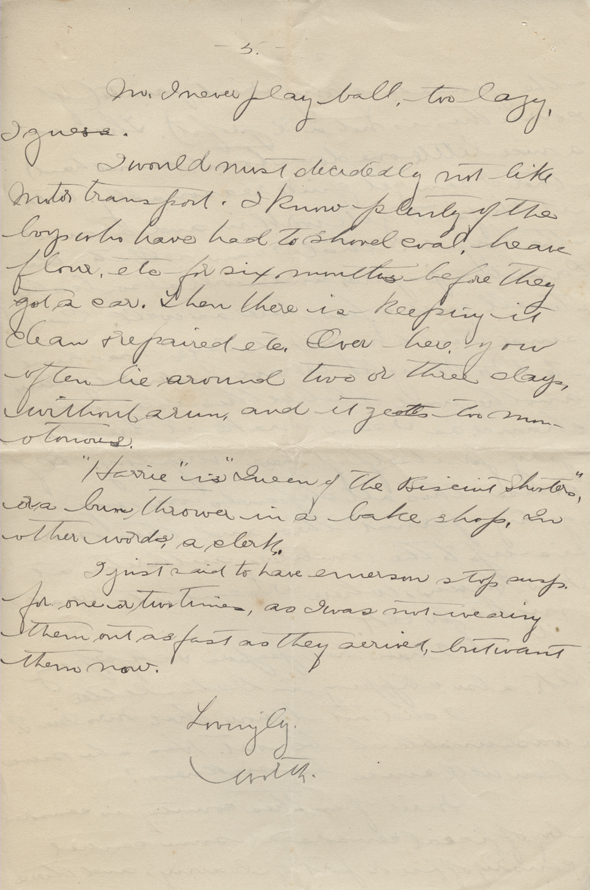 - 5. -
No. I never play ball, too lazy,
I guess.
I would most decidedly not like
Motor transport. I know plenty of the
boys who have had to shovel coal, heave
flour, etc for six months before they
got a car. Then there is keeping it
clean & repaired etc. Over here, you
often lie around two or three days,
without a run, and it gets too mon-
otonous.
"Harrie" is "Queen of the Biscuit Shooters",
or a bun thrower in a bake shop, In
other words, a clerk.
I just said to have emerson stop susp.
for one or two times, as I was not wearing
them out as fast as they arived, but want
them now.
Lovingly.
Worth.